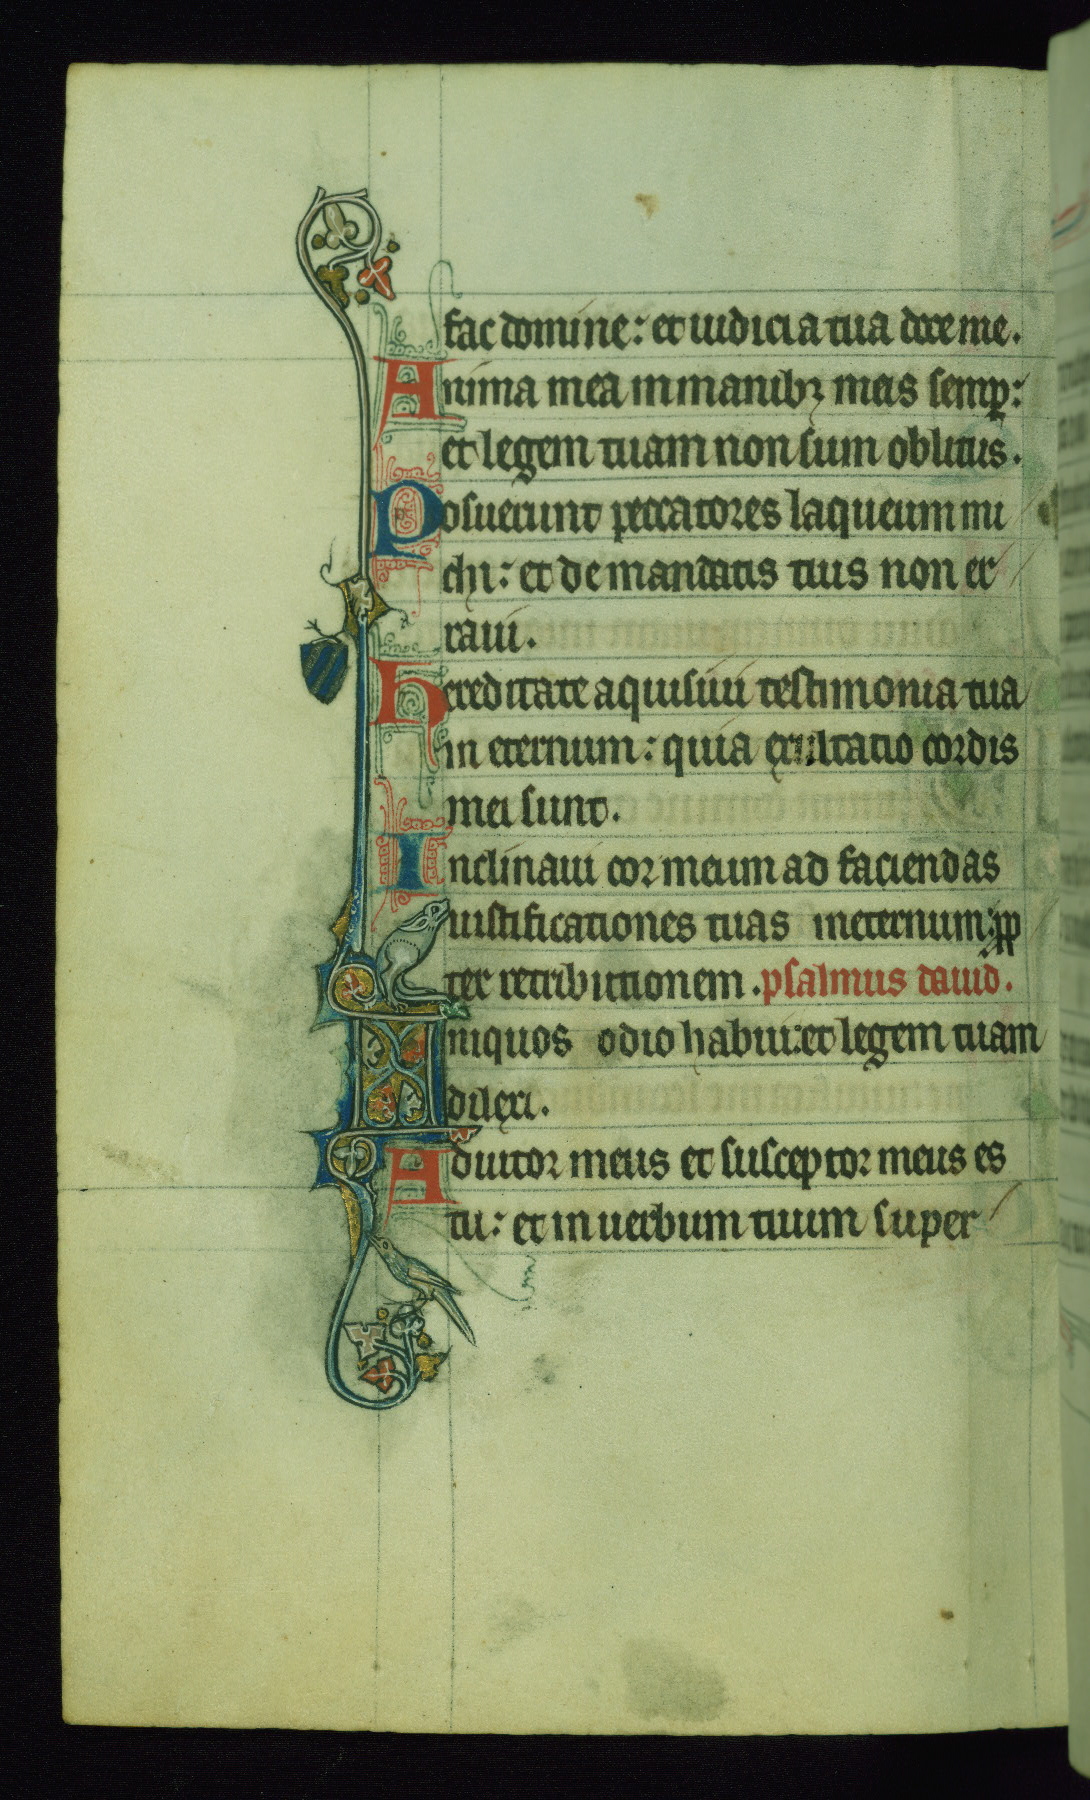 fac domine: et iudicia tua doce me.
Anima mea in manibꝫ meis semꝑ:
et legem tuam non sum oblitus.
Posuerunt peccatores laqueum mi
chi: et de mandatis tuis non er
raui.
Hereditate aquisiui testimonia tua
in eternum: quia exultatio cordis
mei sunt.
Inclinaui cor meum ad faciendas
iustificationes tuas in eternum: ꝓp
ter retributionem. psalmus dauid.
Iniquos odio habui: et legem tuam
dilexi.
Adiutor meus et susceptor meus es
tu: et in uerbum tuum super